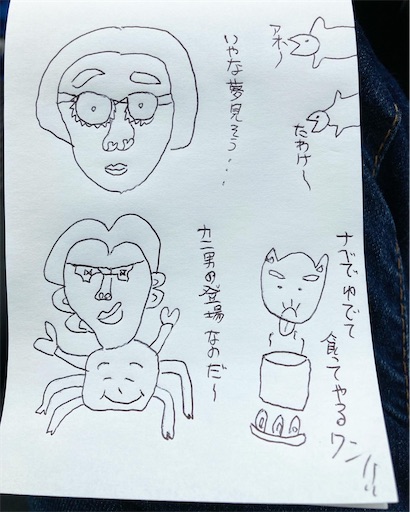 アホ〜
たわけ〜
いやな夢見そう・・・
カニ男の登場なのだ〜
ナベでゆでて
食ってやるワン!!